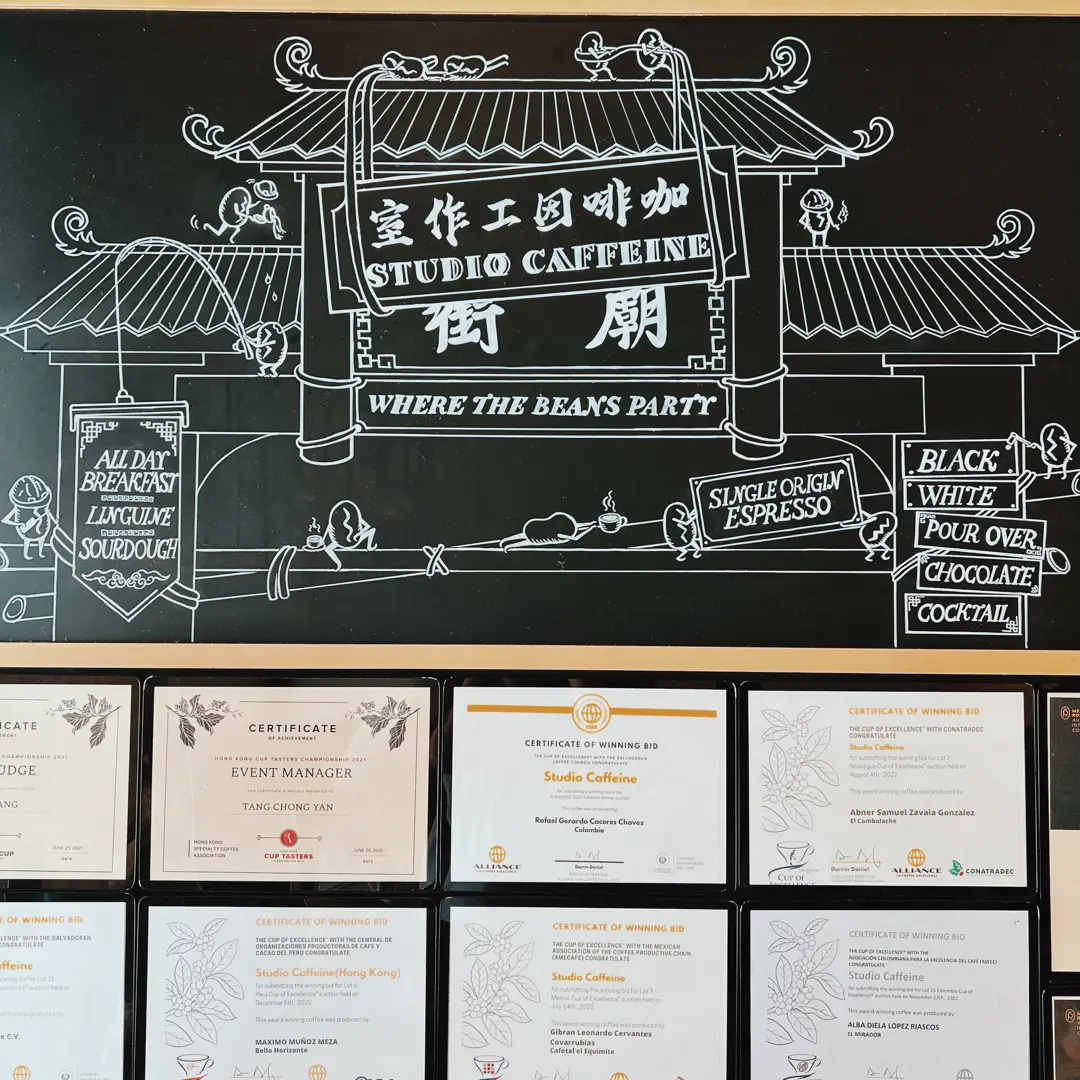 室作工因啡咖
STUDIO CAFFEINE
街 廟
WHERE THE BEANS PARTY
ALL DAY
BREAKFAST
LINGUINE
SOURDOUGH
SINGLE ORIGIN
ESPRESSO
BLACK
WHITE
POUR OVER
CHOCOLATE
COCKTAIL
CHAMPIONSHIP 2021
JUNE 20, 2021
DATE
CERTIFICATE
OF ACHIEVEMENT
HONG KONG CUP TASTERS CHAMPIONSHIP 2021
EVENT MANAGER
THIS CERTIFICATE IS PROUDLY PRESENTED TO
TANG CHONG YAN
HONG KONG
SPECIALTY COFFEE
ASSOCIATION
CUP TASTERS
JUNE 20, 2021
DATE
CERTIFICATE OF WINNING BID
THE CUP OF EXCELLENCE® WITH THE SALVADORAN
COFFEE COUNCIL CONGRATULATE
Studio Caffeine
for submitting a winning bid in the
This coffee was produced by:
Rafael Gerardo Caceres Chavez
Colombia
ALLIANCE
FOR COFFEE EXCELLENCE
Darrin Daniel
EXECUTIVE DIRECTOR
CERTIFICATE OF WINNING BID
THE CUP OF EXCELLENCE® WITH CONATRADEC
CONGRATULATE
Studio Caffeine
for submitting the winning bid for Lot 7
Nicaragua Cup of Excellence® auction held on
August 4th, 2022
This award winning coffee was produced by
Abner Samuel Zavala Gonzalez
El Cambalache
CUP OF
EXCELLENCE
Darrin Daniel
EXECUTIVE DIRECTOR
ALLIANCE
FOR COFFEE EXCELLENCE
CONATRADEC
E OF WINNING BID
WITH THE SALVADORAN
winning bid for Lot 1b
auction held on
coffee was produced by
e C.V.
CERTIFICATE OF WINNING BID
THE CUP OF EXCELLENCE® WITH THE CENTRAL DE
ORGANIZACIONES PRODUCTORAS DE CAFÉ Y
CACAO DEL PERÚ CONGRATULATE
Studio Caffeine(Hong Kong)
for submitting the winning bid for Lot 6
Perú Cup of Excellence® auction held on
December 6th, 2022
This award winning coffee was produced by
MAXIMO MUÑOZ MEZA
Bello Horizonte
CERTIFICATE OF WINNING BID
THE CUP OF EXCELLENCE® WITH THE MEXICAN
ASSOCIATION OF THE COFFEE PRODUCTIVE CHAIN
(AMECAFÉ) CONGRATULATE
Studio Caffeine
for submitting the winning bid for Lot 7
Mexico Cup of Excellence® auction held on
July 14th, 2022
This award winning coffee was produced by:
Gibran Leonardo Cervantes
Covarrubias
Cafetal el Equimite
CERTIFICATE OF WINNING BID
THE CUP OF EXCELLENCE® WITH THE
ASOCIACIÓN COLOMBIANA PARA LA EXCELENCIA DEL CAFÉ (ASECC)
CONGRATULATE
Studio Caffeine
for submitting the winning bid for Lot 15 Colombia Cup of
Excellence® auction held on November 22th, 2022
This award winning coffee was produced by:
ALBA DIELA LOPEZ RIASCOS
EL MIRADOR